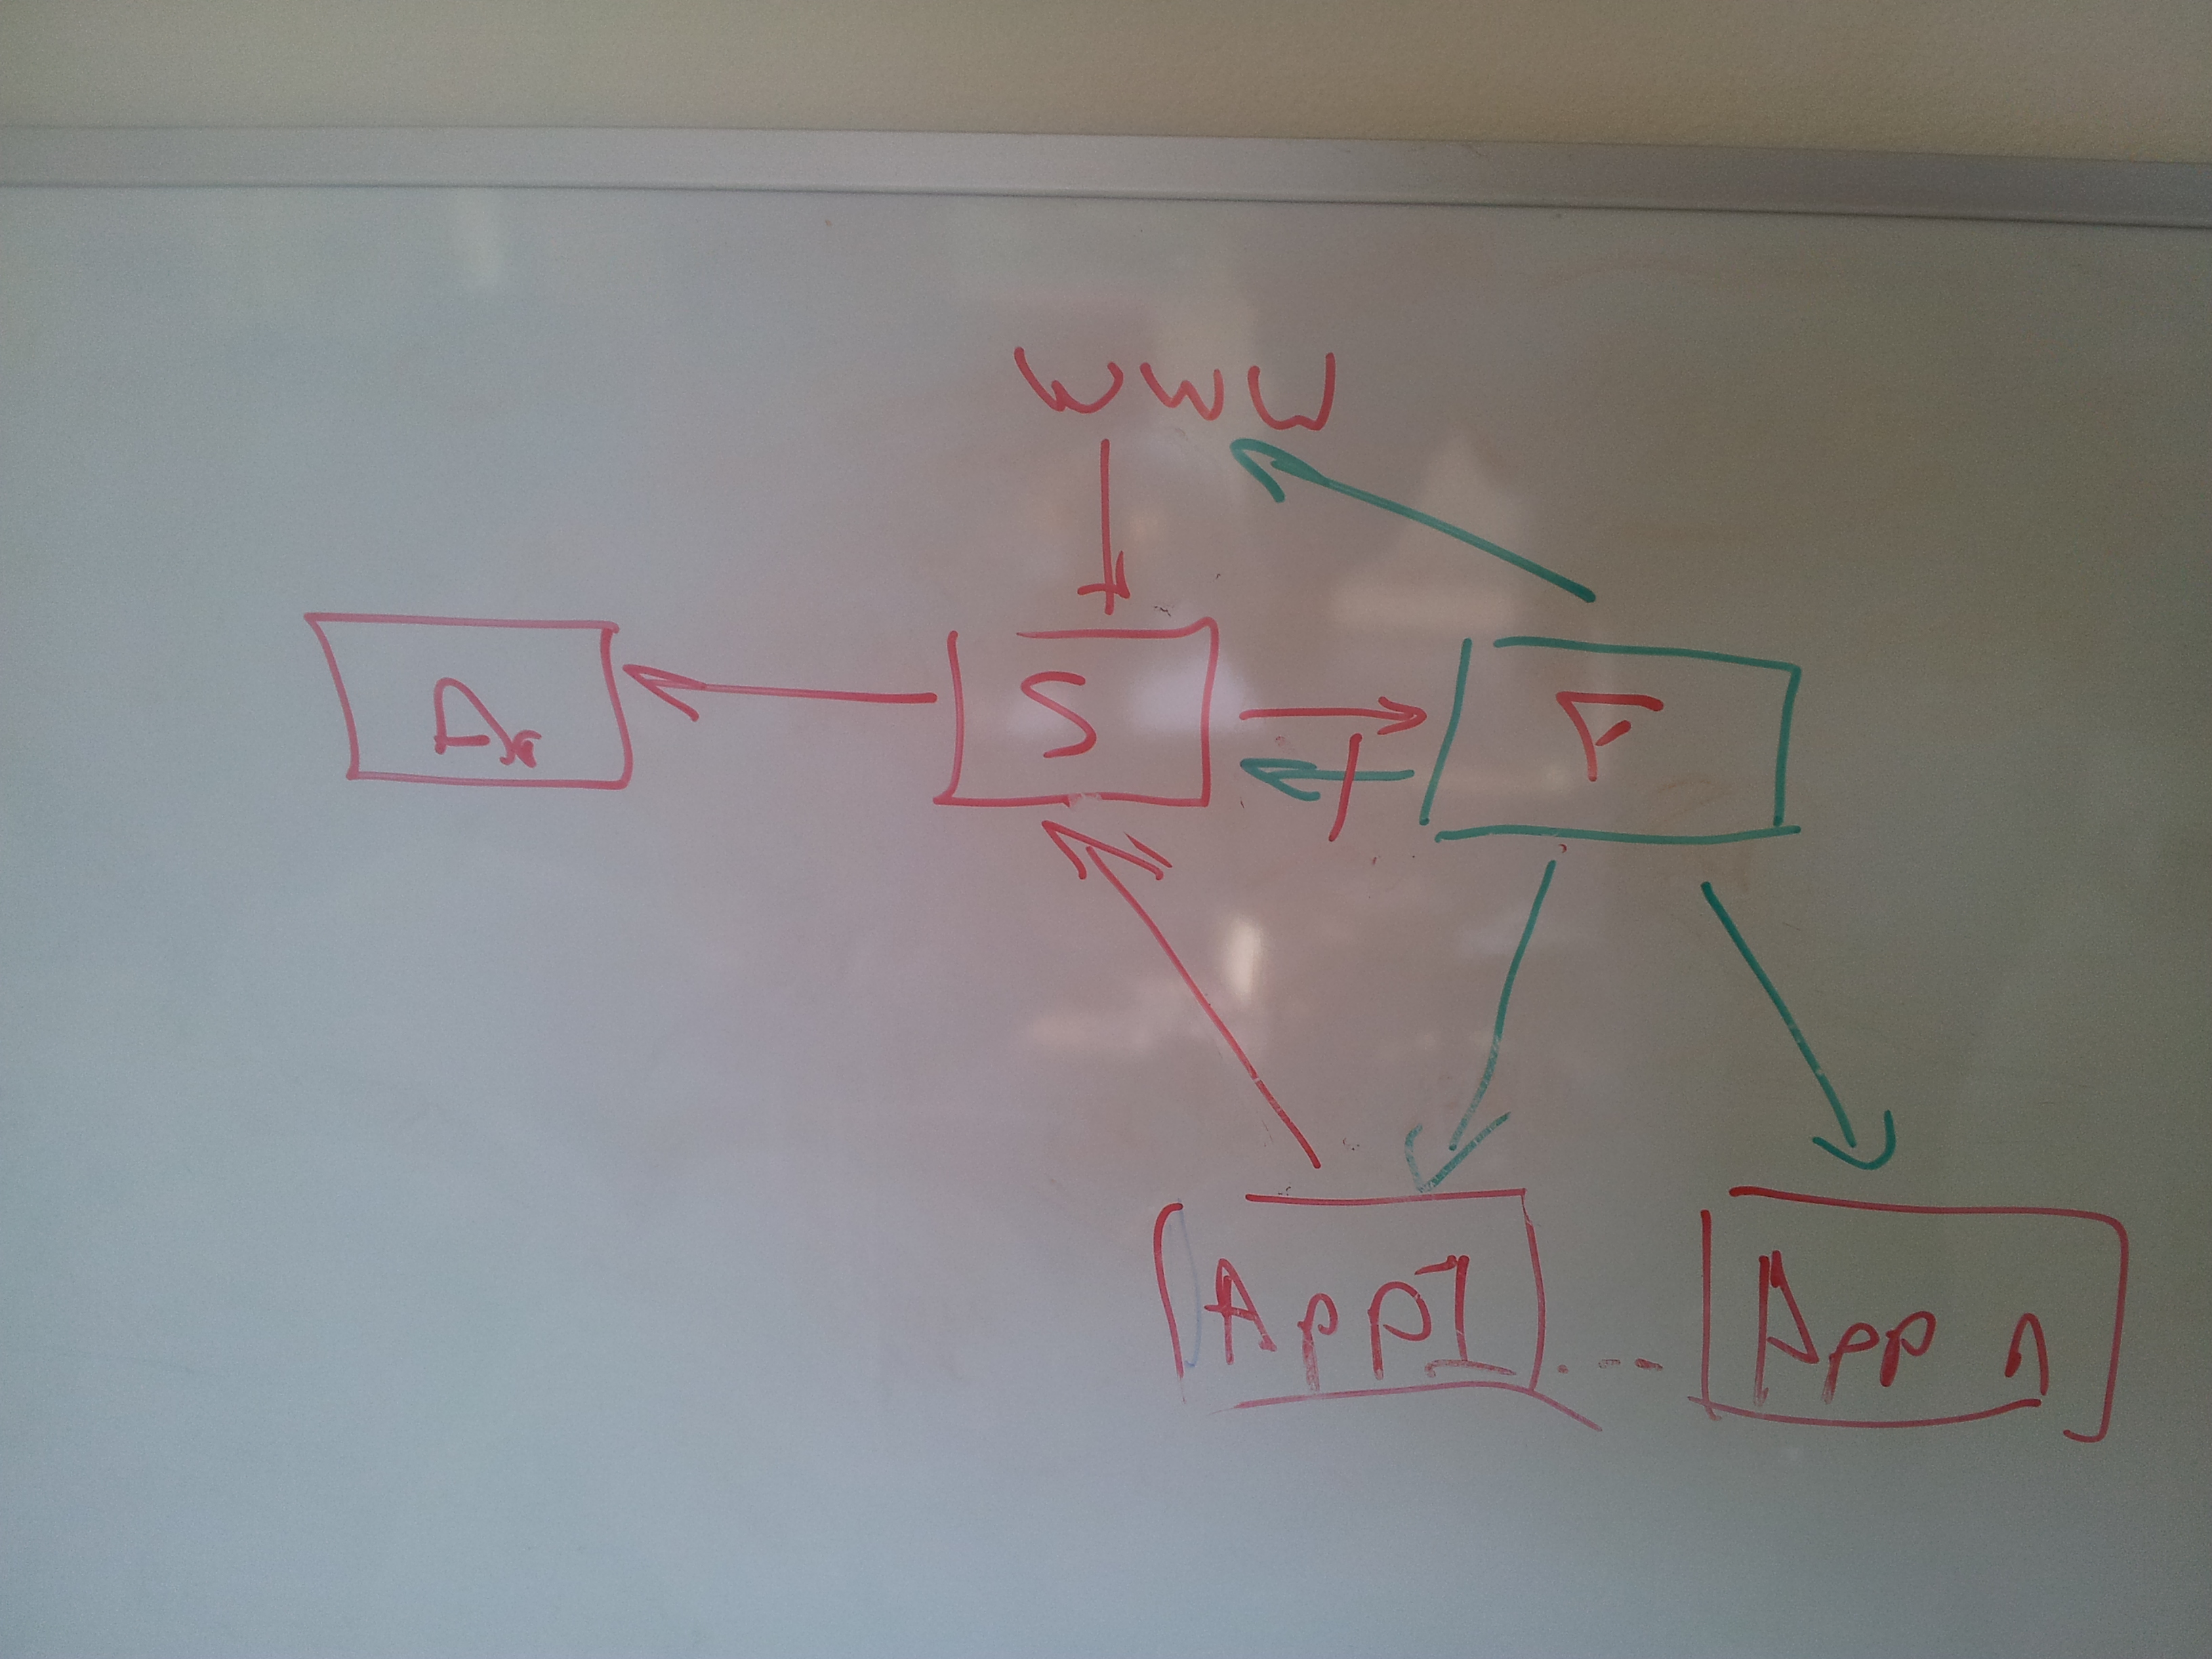 WWW
S
F
App1 ... App n